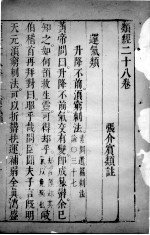 類經二十八卷
張介賓類註
運氣類
升降不前須窮刺法
黃帝問曰升降不前氣交有變即成暴鬱余已
知之如何預救生靈可得却乎
岐
伯稽首再拜對曰昭乎哉問臣聞夫子言既明
天元須窮刺法可以折鬱扶運補弱全真瀉盛